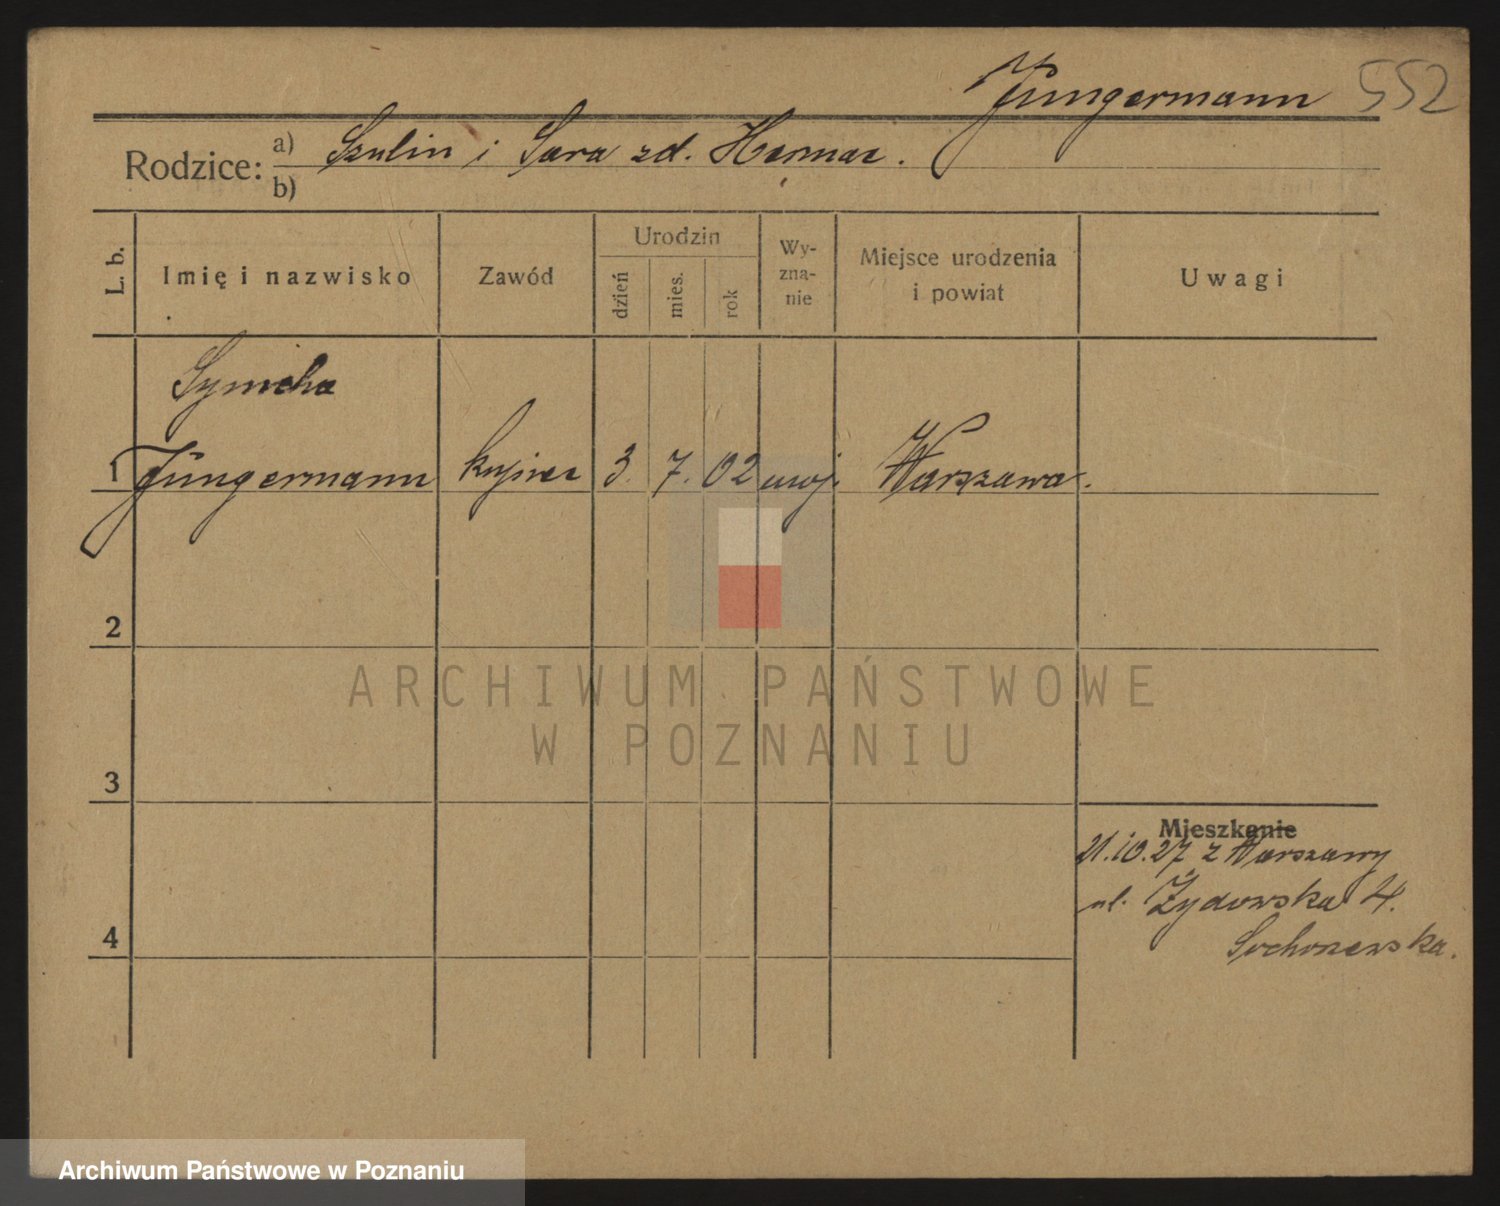 Jüngermann 552
Rodzice: a) Szulin i Sara zd. Hermac.
b)
L. b.
Imię i nazwisko
Zawód
Urodzin
dzień
mies.
rok
Wy-
zna-
nie
Miejsce urodzenia
i powiat
Uwagi
Symcha
1 Jüngermann kupiec 3. 7. 02 mojż. Warszawa.
2
ARCHIWUM PAŃSTWOWE
W POZNANIU
3
Mieszkanie
21.10.27 z Warszawy
ul. Żydowska 4.
4
Archiwum Państwowe w Poznaniu